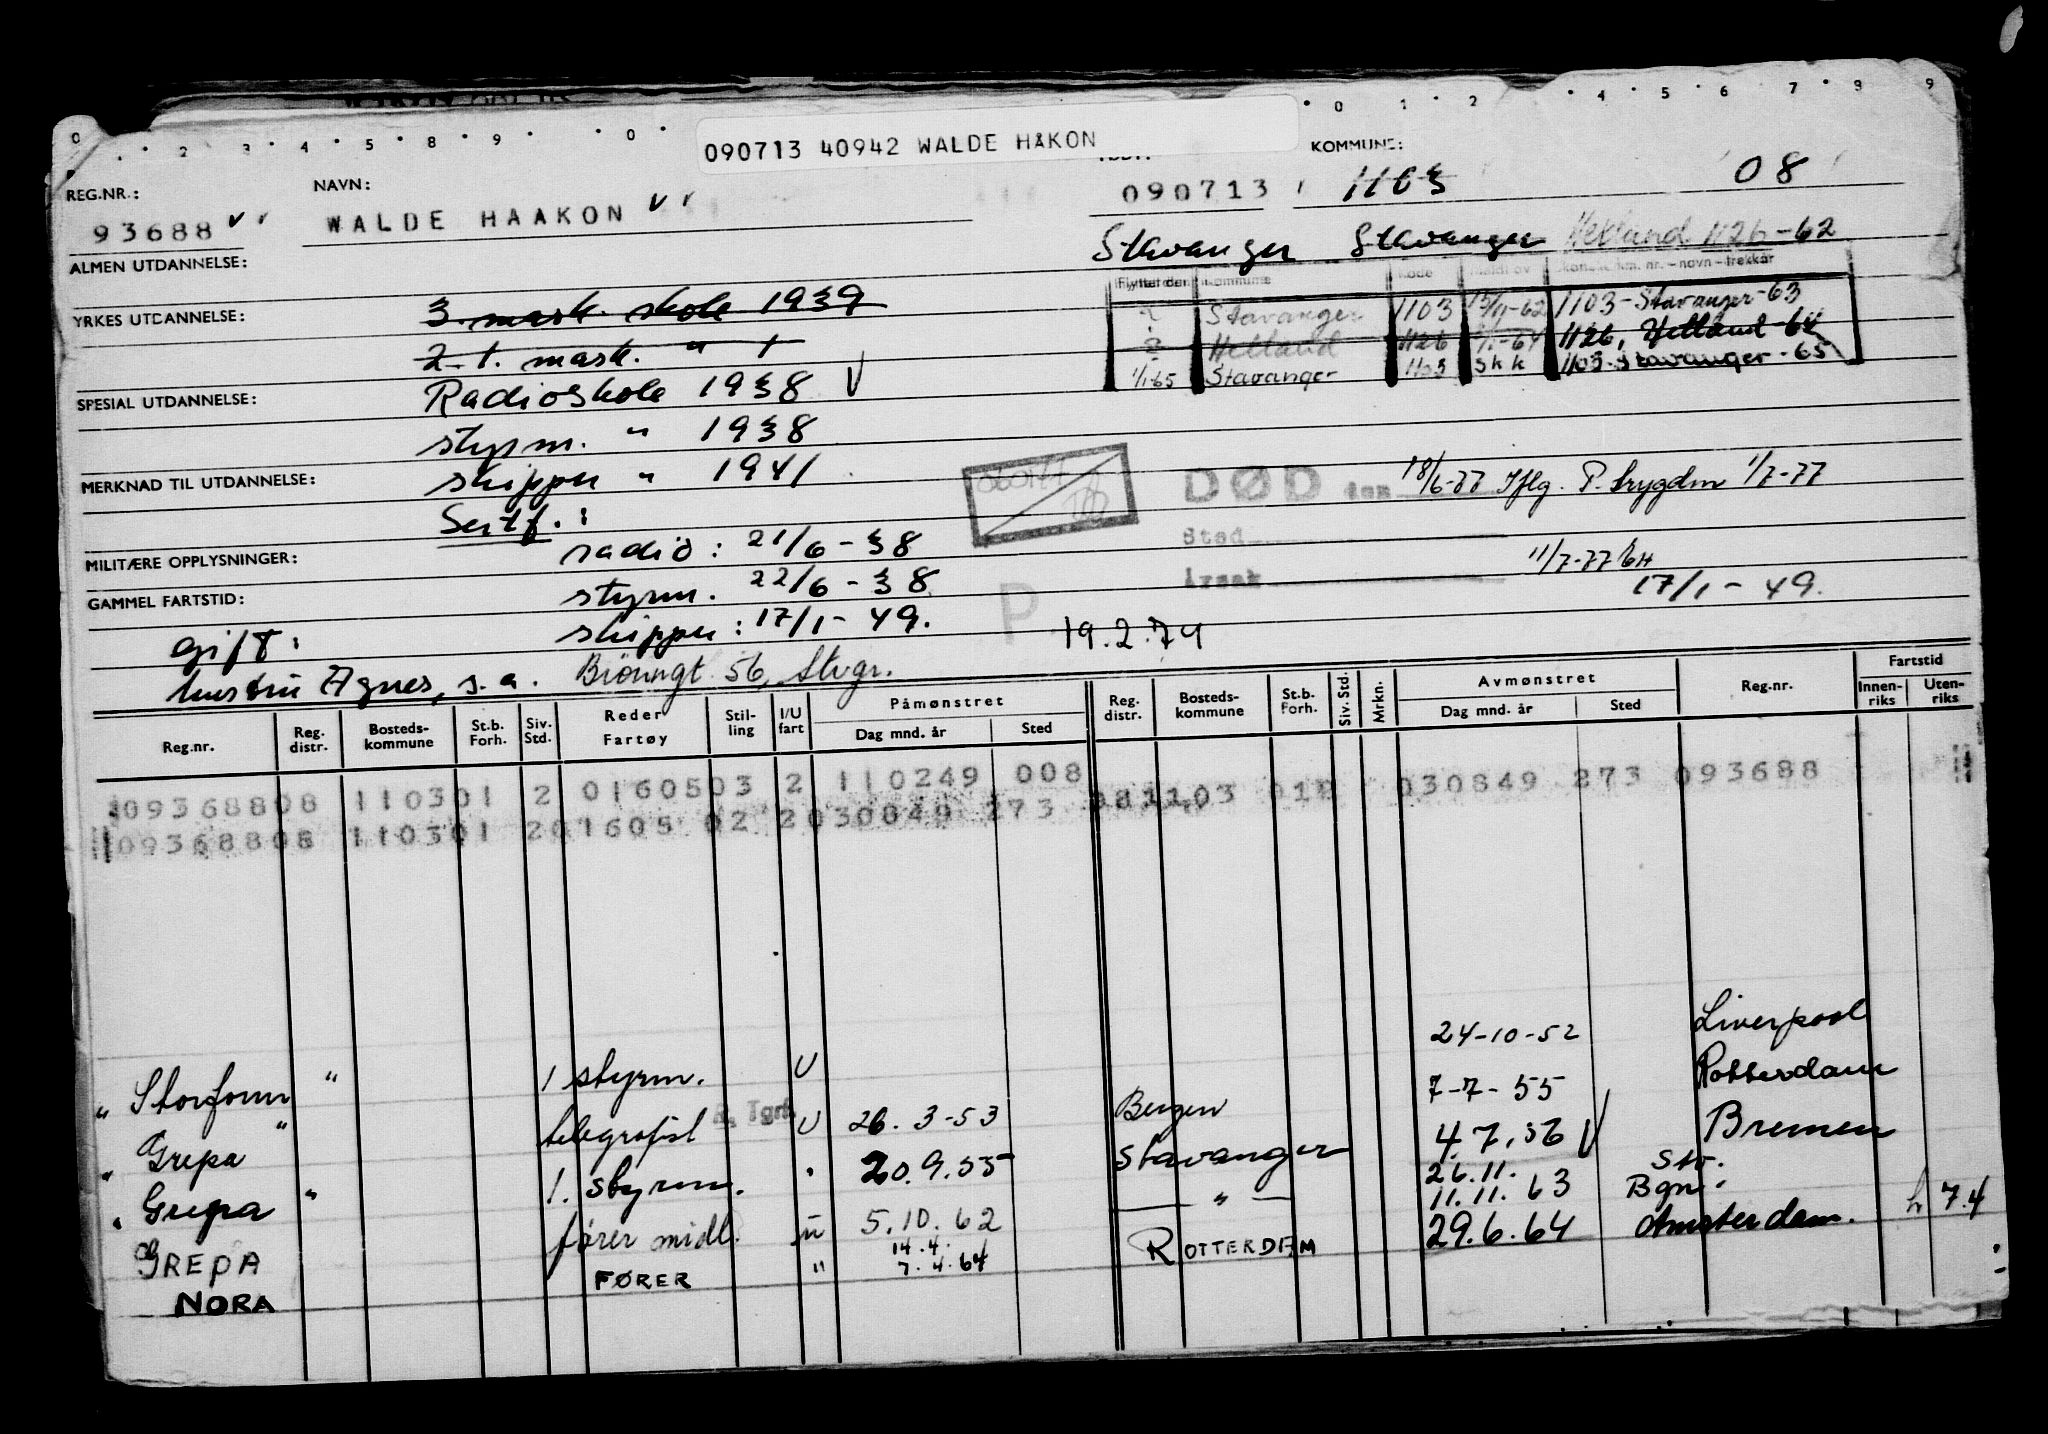 090713 40942 WALDE HÅKON
KOMMUNE:
REG.NR.:
NAVN:
93688
WALDE HAAKON
090713
1103
08
Stavanger Stavanger Hetland 1126-62
ALMEN UTDANNELSE:
YRKES UTDANNELSE:
3. mask. skole 1939
Stavanger 1103 1103-Stavanger-63
2. 1. mask. "
Hetland 1126 1126, Hetland-64
1/1-65 Stavanger 1103 skk 1103-Stavanger-65
SPESIAL UTDANNELSE:
Radioskole 1938
styrm. " 1938
MERKNAD TIL UTDANNELSE:
skipper " 1941
Sertf.:
DØD den 18/6-77 Iflg. P. trygden 1/7-77
Sted
MILITÆRE OPPLYSNINGER:
radio: 21/6-38
Årsak
11/7-77
GAMMEL FARTSTID:
styrm. 22/6-38
P
17/1-49.
gift:
skipper: 17/1-49.
19.2.74
hustru Agnes, s.a. 56, Stvgr.
Reg.nr.
Reg. distr.
Bosteds- kommune
St.b. Forh.
Siv. Std.
Reder Fartøy
Stil- ling
I/U fart
Påmønstret
Dag mnd. år
Sted
Reg. distr.
Bosteds- kommune
St.b. Forh.
Siv. Std.
Mrkn.
Avmønstret
Dag mnd. år
Sted
Reg.nr.
Fartstid
Innen- riks
Uten- riks
09368808 110301 2 0160503 2 110249 008 030849 273 093688
09368808 110301 201605 02 2030849 273
" Storfonn " 1 styrm. U 24-10-52 Liverpool
" Grepa " telegrafist U 26.3-53 Bergen 7-7-55 Rotterdam
" Grepa " 1. styrm. " 20.9.55 Stavanger 4.7.56 Bremen
GREPA fører midl. u 5.10.62 " 26.11. 11.11.63 Bgn.
NORA FØRER " 14.4. 7.4.64 ROTTERDAM 29.6.64 Amsterdam. 7.4